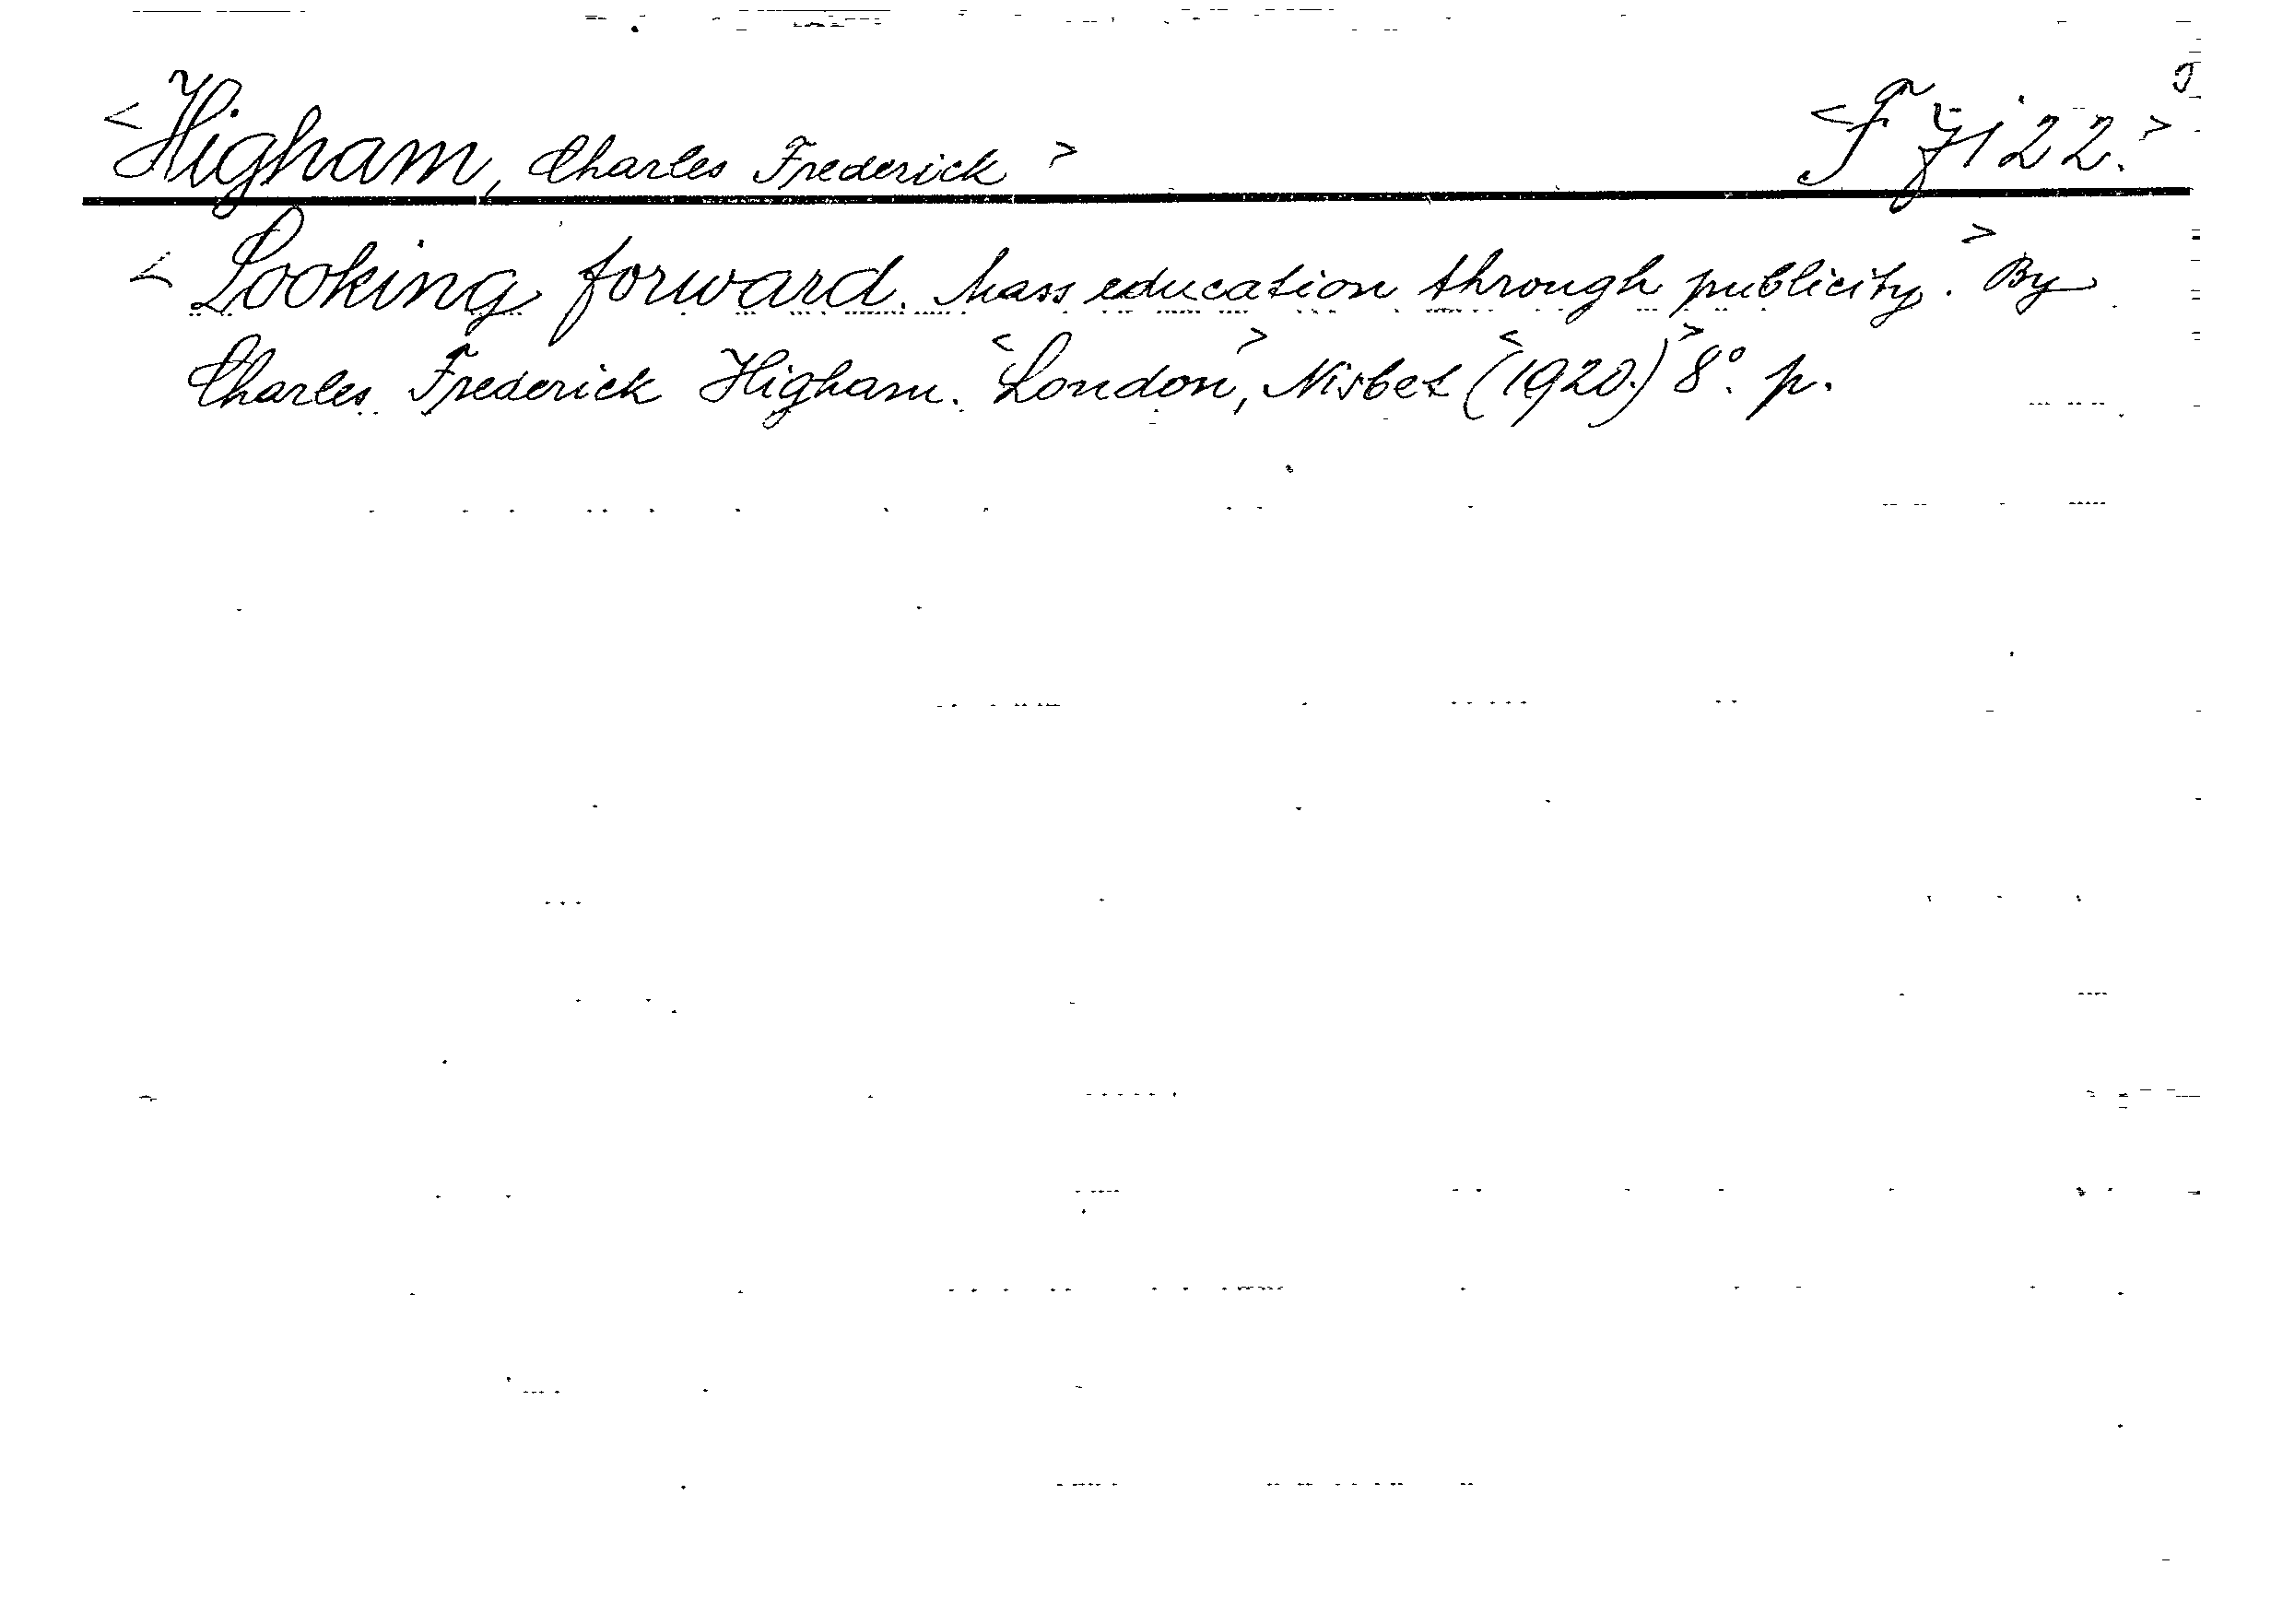 <Higham, Charles Frederick> <F 7122.>
<Looking forward. Mass education through publicity.> By
Charles Frederick Higham. <London>, Nisbet <(1920.)> 8°. p.